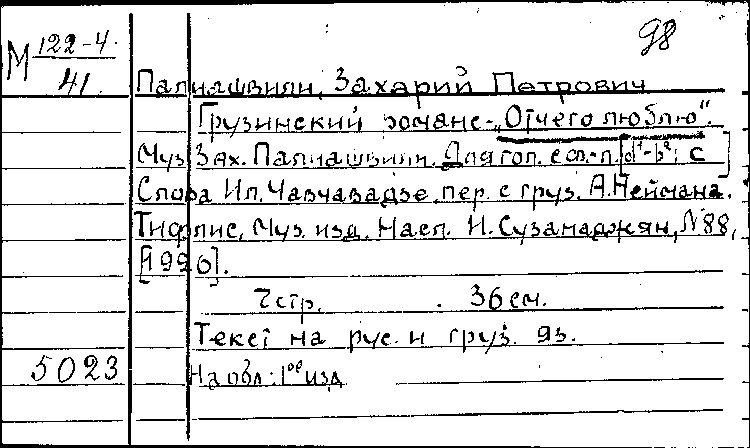 98
М 122-4.
41.
Палиашвили, Захарий Петрович
Грузинский романс-„Отчего люблю".
Муз. Зах. Палиашвили. Для гол. с сп.-п. [d¹-b²; c]
Слова Ил. Чавчавадзе, пер. с груз. А. Неймана.
Тифлис, Муз. изд. Насл. И. Сузанаджян, N 88,
[1990].
7 стр. 36 см.
Текст на рус. и груз. яз.
5023
На обл.: 1ое изд